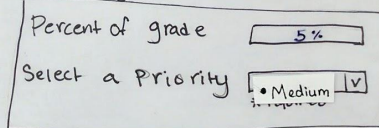 Percent of grade 5%
Select a Priority V
• Medium